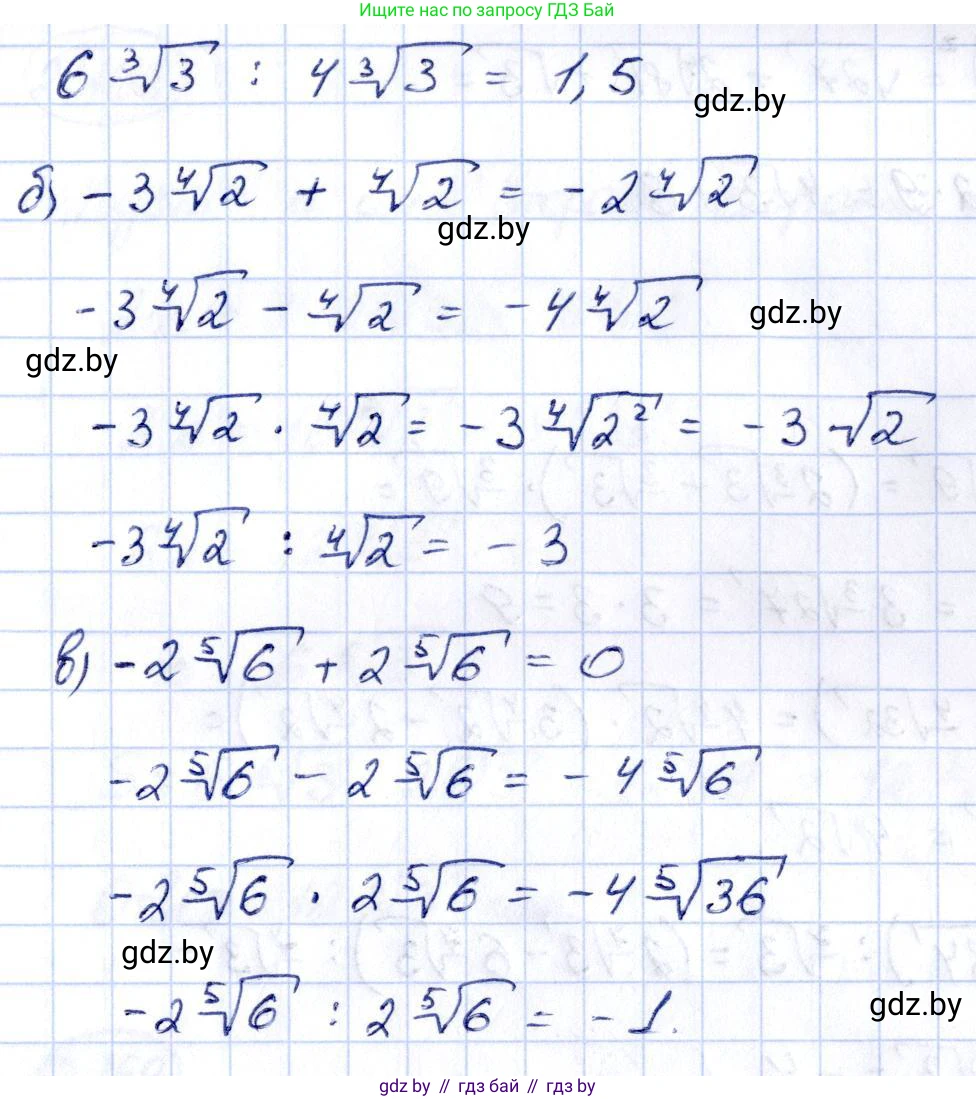 Ищите нас по запросу ГДЗ Бай
6∛3 : 4∛3 = 1,5
gdz.by
б) -3∜2 + ∜2 = -2∜2
gdz.by
-3∜2 - ∜2 = -4∜2
gdz.by
gdz.by
-3∜2 · ∜2 = -3∜2² = -3√2
-3∜2 : ∜2 = -3
в) -2⁵√6 + 2⁵√6 = 0
-2⁵√6 - 2⁵√6 = -4⁵√6
-2⁵√6 · 2⁵√6 = -4⁵√36
gdz.by
-2⁵√6 : 2⁵√6 = -1.
gdz.by
gdz by // гдз бай // gdz by